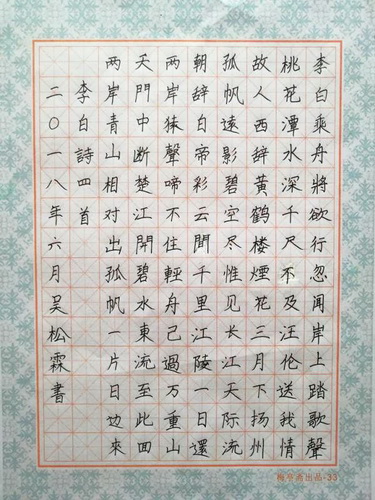 李白乘舟將欲行忽闻岸上踏歌聲
桃花潭水深千尺不及汪伦送我情
故人西辞黄鹤楼煙花三月下扬州
孤帆遠影碧空尽惟见长江天际流
朝辞白帝彩云間千里江陵一日還
两岸猿聲啼不住輕舟已過万重山
天門中断楚江開碧水東流至此回
两岸青山相对出孤帆一片日边來
李白詩四首
二〇一八年六月吴松霖書
出品-33